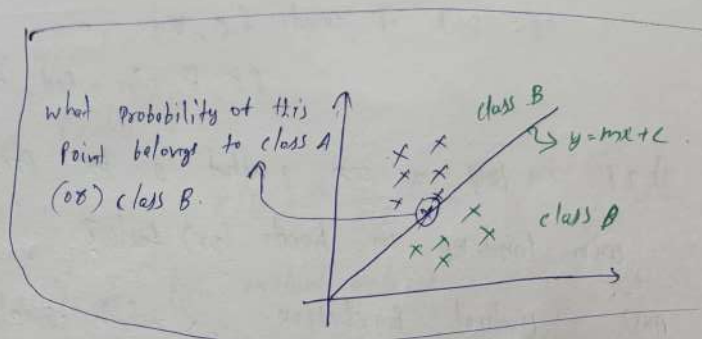 what probability of this
point belongs to class A
(or) class B.
class B
y=mx+c.
class A